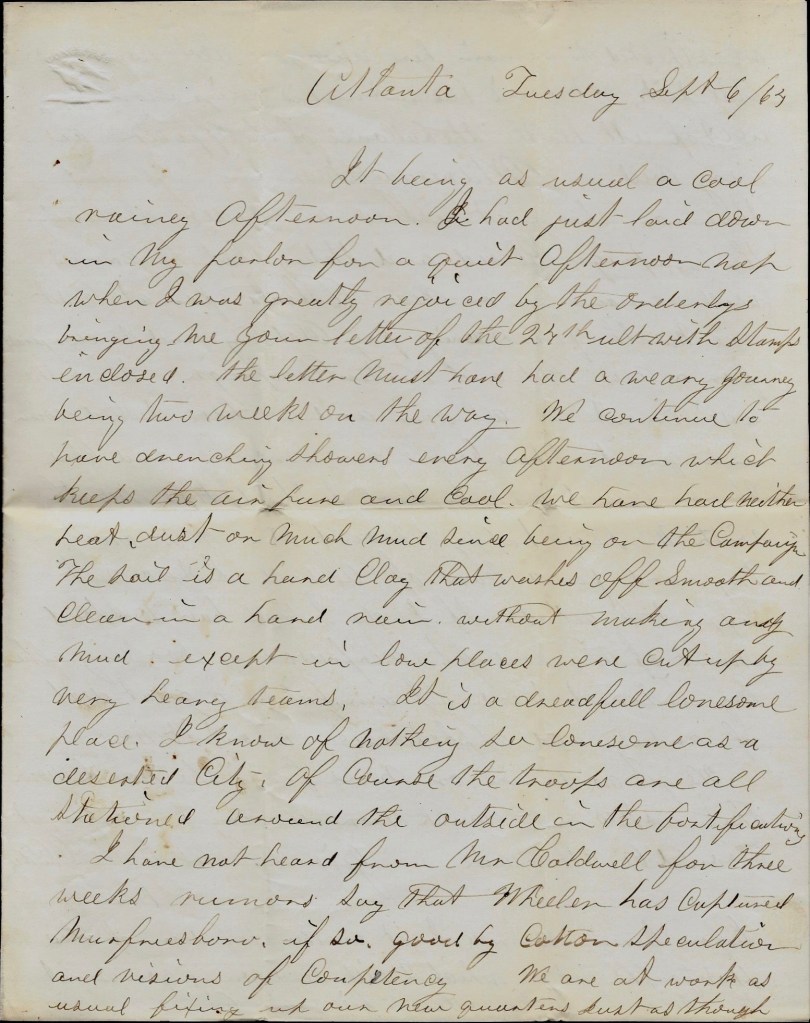 Atlanta Tuesday Sept 6/64
It being as usual a cool
rainey Afternoon. I had just laid down
in my parlor for a quiet Afternoon nap
when I was greatly rejoiced by the orderlys
bringing me your letter of the 24th ult with stamps
enclosed. the letter must have had a weary journey
being two weeks on the way. We continue to
have drenching showers every afternoon which
keeps the air pure and cool. we have had neither
heat, dust or much mud since being on the Campaign
The soil is a hard Clay that washes off smooth and
clean in a hard rain. without making any
mud. except in low places were cut up by
very heavey teams. It is a dreadfull lonesome
place. I know of nothing so lonesome as a
deserted City. Of Course the troops are all
stationed around the outside in the fortifications
I have not heard from Mr Coldwell for three
weeks rumors say that Wheeler has Captured
Murfreesboro. if so. good by Cotton speculation
and visions of Competency We are at work as
usual fixing up our new quarters just as though